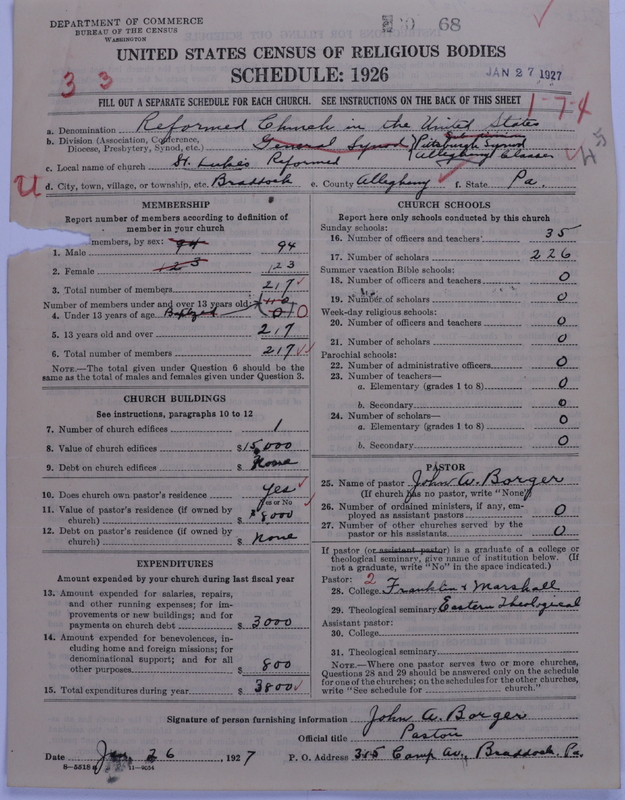 DEPARTMENT OF COMMERCE
BUREAU OF THE CENSUS
WASHINGTON
68
UNITED STATES CENSUS OF RELIGIOUS BODIES
SCHEDULE: 1926
JAN 27 1927
3 3
FILL OUT A SEPARATE SCHEDULE FOR EACH CHURCH. SEE INSTRUCTIONS ON THE BACK OF THIS SHEET
1-7-4
a. Denomination Reformed Church in the United States
b. Division (Association, Conference, Diocese, Presbytery, Synod, etc.) General Synod Pittsburgh Synod
Allegheny Classis
45
c. Local name of church St. Luke's Reformed
u d. City, town, village, or township, etc. Braddock e. County Allegheny f. State Pa.
MEMBERSHIP
Report number of members according to definition of
member in your church
members, by sex: 94
1. Male 94
2. Female 123 123
3. Total number of members 217
Number of members under and over 13 years old: 110
4. Under 13 years of age Baptized 0 0
5. 13 years old and over 217
6. Total number of members 217
NOTE.—The total given under Question 6 should be the
same as the total of males and females given under Question 3.
CHURCH BUILDINGS
See instructions, paragraphs 10 to 12
7. Number of church edifices 1
8. Value of church edifices $15,000
9. Debt on church edifices $ None
10. Does church own pastor's residence Yes
Yes or No
11. Value of pastor's residence (if owned by
church) $ 8,000
12. Debt on pastor's residence (if owned by
church) $ None
EXPENDITURES
Amount expended by your church during last fiscal year
13. Amount expended for salaries, repairs,
and other running expenses; for im-
provements or new buildings; and for
payments on church debt $ 3000
14. Amount expended for benevolences, in-
cluding home and foreign missions; for
denominational support; and for all
other purposes $ 800
15. Total expenditures during year $ 3800
CHURCH SCHOOLS
Report here only schools conducted by this church
Sunday schools:
16. Number of officers and teachers 35
17. Number of scholars 226
Summer vacation Bible schools:
18. Number of officers and teachers 0
19. Number of scholars 0
Week-day religious schools:
20. Number of officers and teachers 0
21. Number of scholars 0
Parochial schools:
22. Number of administrative officers 0
23. Number of teachers—
a. Elementary (grades 1 to 8) 0
b. Secondary 0
24. Number of scholars—
a. Elementary (grades 1 to 8) 0
b. Secondary 0
PASTOR
25. Name of pastor John W. Borger
(If church has no pastor, write "None")
26. Number of ordained ministers, if any, em-
ployed as assistant pastors 0
27. Number of other churches served by the
pastor or his assistants 0
If pastor (or assistant pastor) is a graduate of a college or
theological seminary, give name of institution below. (If
not a graduate, write "No" in the space indicated.)
Pastor: 2
28. College Franklin & Marshall
29. Theological seminary Eastern Theological
Assistant pastor:
30. College
31. Theological seminary
NOTE.—Where one pastor serves two or more churches,
Questions 28 and 29 should be answered only on the schedule
for one of the churches; on the schedules for the other churches,
write "See schedule for church."
Signature of person furnishing information John W. Borger
Official title Pastor
Date Jan. 26, 1927 P. O. Address 315 Camp Av., Braddock, Pa.
8-5518 a 11-9034